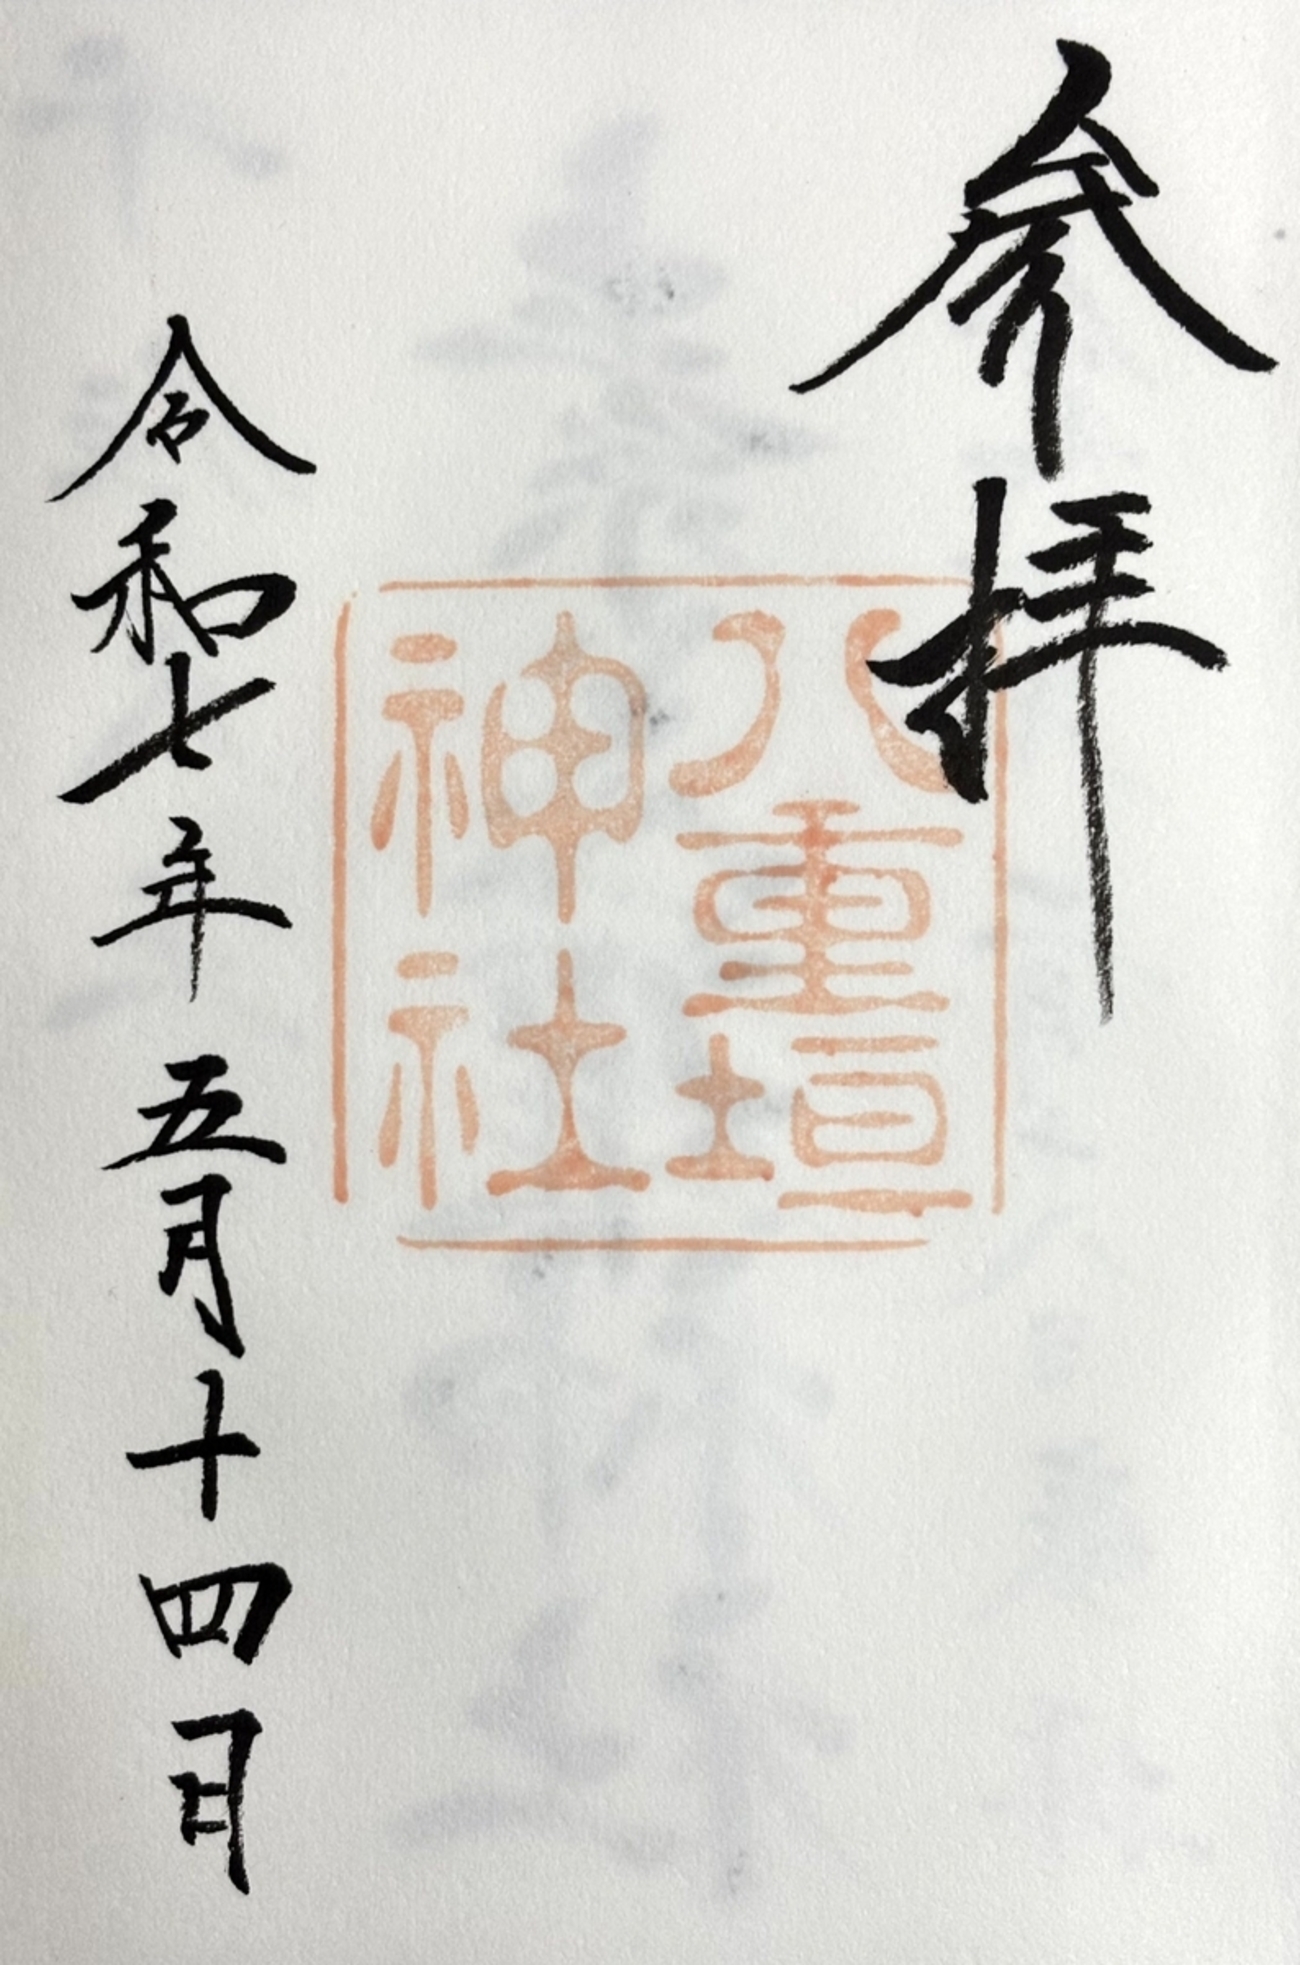 参拝
八重垣
神社
令和七年五月十四日